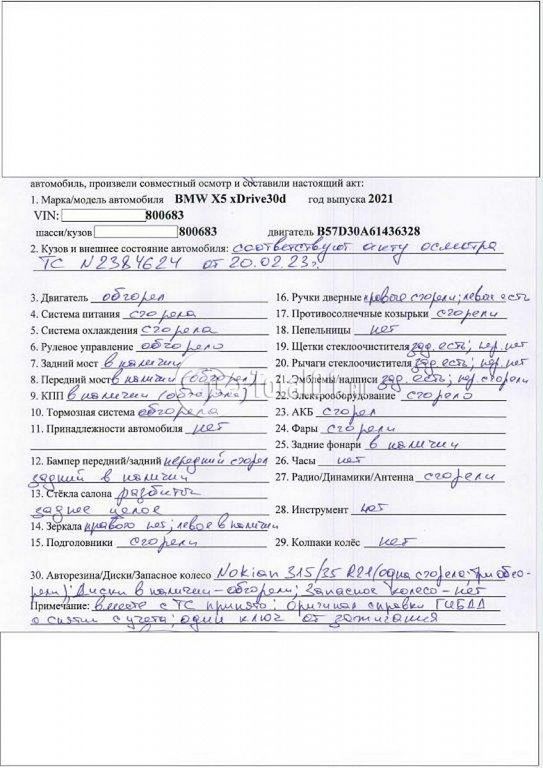 автомобиль, произвели совместный осмотр и составили настоящий акт:
1. Марка/модель автомобиля BMW X5 xDrive30d год выпуска 2021
VIN: 800683
шасси/кузов 800683 двигатель B57D30A61436328
2. Кузов и внешнее состояние автомобиля: соответствуют акту осмотра
ТС N2384624 от 20.02.23г.
3. Двигатель обгорел
4. Система питания сгорела
5. Система охлаждения сгорела
6. Рулевое управление обгорело
7. Задний мост в наличии
8. Передний мост в наличии (обгорел)
9. КПП в наличии (обгорела)
10. Тормозная система обгорела
11. Принадлежности автомобиля нет
12. Бампер передний/задний передний сгорел
задний в наличии
13. Стёкла салона разбиты
заднее целое
14. Зеркала правого нет; левое в наличии
15. Подголовники сгорели
16. Ручки дверные правые сгорели; левые есть
17. Противосолнечные козырьки сгорели
18. Пепельницы нет
19. Щетки стеклоочистителя зад. есть; пер. нет
20. Рычаги стеклоочистителя зад. есть; пер. нет
21. Эмблемы надписи зад. есть; пер. сгорели
22. Электрооборудование сгорело
23. АКБ сгорел
24. Фары сгорели
25. Задние фонари в наличии
26. Часы нет
27. Радио/Динамики/Антенна сгорели
28. Инструмент нет
29. Колпаки колёс нет
30. Авторезина/Диски/Запасное колесо Nokian 315/35 R21 (одна сгорела; три обго-
рели); Диски в наличии - обгорели; Запасное колесо - нет
Примечание: вместе с ТС принято: Оригинал справки ГИБДД
о снятии с учета; один ключ от зажигания